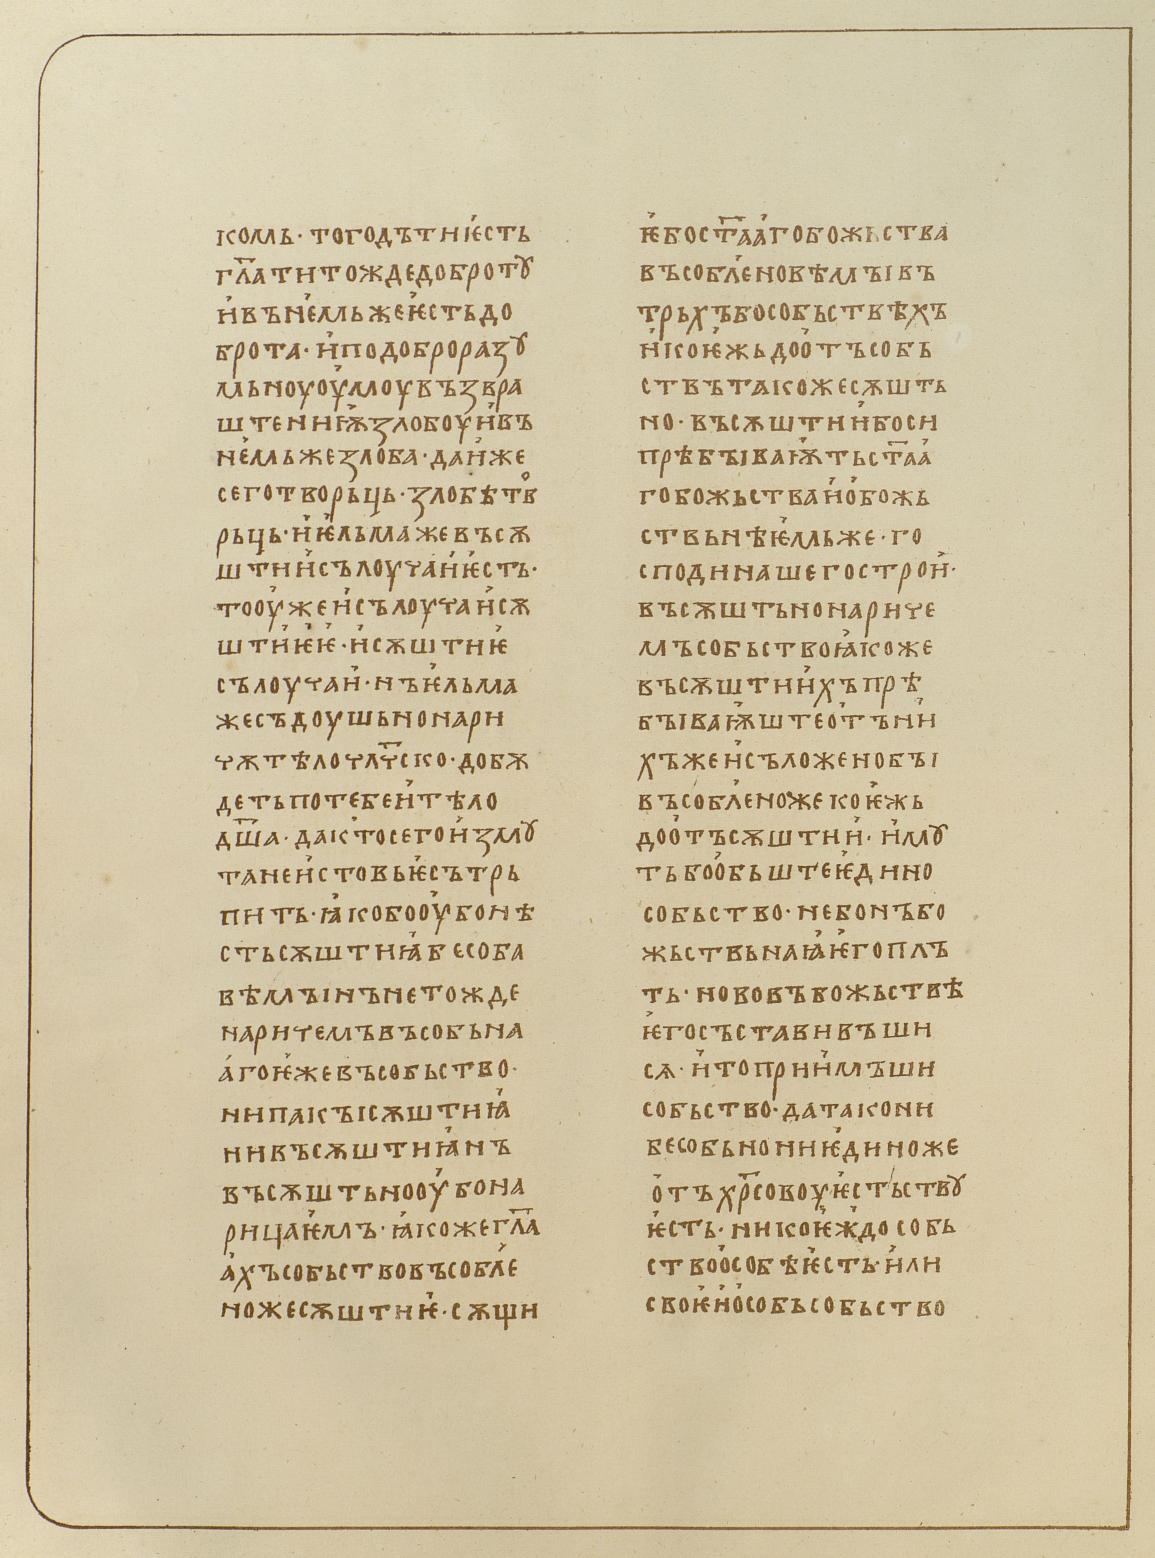 комь· тогодътни ѥсть
гл҃атитождедоброту
и҆вън҆емьжеѥ҆стьдо
брота· и҆подоброразу
мьноуоу҆моувъзвра
штениѭ҆злобоуи҆въ
н҆емьжезлоба· даи҆же
сеготворьць· злобѣтво
рьць· и҆ѥ҆льмажевъсѫ
штиии҆сълоучаи҆ѥ҆сть·
тооу҆жеи҆сълоучаи҆сѫ
шти҆ѥ҆ѥ҆· и҆сѫштиѥ҆
сълоучаи҆· нъѥ҆льма
жесъдоушьнонари
чѫтѣлочл҃чско· добѫ
детьпотебеи҆тѣло
дш҃а· дактосегои҆зму
танеи҆стовьѥ҆сътрь
пить· ꙗ҆кобооу҆бонѣ
стьсѫштиꙗ҆бесоба
вѣмꙑнънетожде
наричемъвъсобьна
а҆гоѥ҆жевъсобьство·
нипакꙑсѫштиꙗ҆
нивъсѫштиꙗ҆нъ
въсѫштьнооу҆бона
рицаѥ҆мъ· ꙗ҆кожегл҃а
а҆хъсобьствовъсобл҆е
ножесѫштиѥ҆· сѫщи
ѥ҆бост҃аа҆гобожьства
въсобл҆еновѣмꙑвъ
трьхъбособьствѣхъ
и҆коѥ҆жьдоо҆тъсобь
ствътакожесѫшть
но· въсѫштии҆боси
прѣбываѭ҆тьст҃аа҆
гобожьстваи҆о҆божь
ствьнѣѥ҆мьже· го
сподинашегострои҆·
въсѫштьнонариче
мъсобьствоꙗ҆коже
въсѫштии҆хъпрѣ
бꙑваѭ҆штео҆тъни҆
хъжеи҆съложенобꙑ
въсобл҆еножекоѥ҆жь
доо҆тъсѫштии҆· и҆му
тьбоо҆бьштеѥ҆дино
собьство· небонъбо
жьствьнаꙗ҆ѥ҆гоплъ
ть· нововъбожьствѣ
ѥ҆госъставивъши
сѧ· и҆топрии҆мъши
собьство· датакони
бесобьнониѥ҆диноже
о҆тъхр҃совоуѥ҆стьству
ѥ҆сть· никоѥ҆ждособь
ствоо҆собѣѥ҆сть· и҆ли
своѥ҆и҆о҆собьсобьство